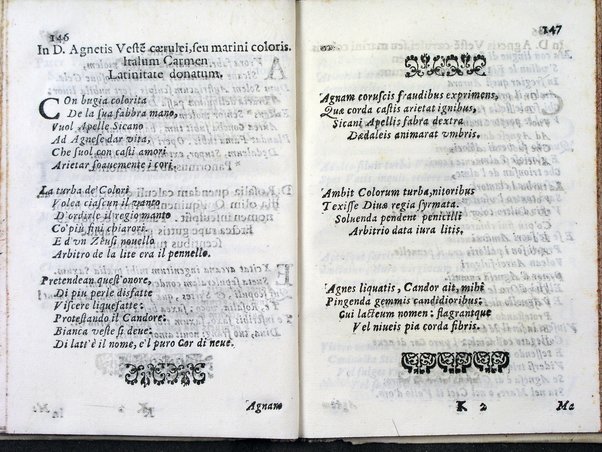 146
In D. Agnetis Vestẽ cærulei, seu marini coloris.
Italum Carmen
Latinitate donatum.
COn bugia colorita
De la sua fabbra mano,
Vuol Apelle Sicano
Ad Agnese dar vita,
Che suol con casti amori
Arietar soauemente i cori.
La turba de' Colori
Volea ciascun il vanto
D'ordirle il regio manto
Co' più fini chiarori.
E d'vn Zeusi nouello
Arbitro de la lite era il pennello.
Pretendean quest'onore,
Di piu perle disfatte
Viscere liquefatte:
Protestando il Candore:
Bianca veste si deue:
Di latt'è il nome, e'l puro Cor di neue.
Agnam
147
Agnam coruscis fraudibus exprimens,
Quæ corda castis arietat ignibus,
Sicani Apellis fabra dextra
Dædaleis animarat vmbris.
Ambit Colorum turba, nitoribus
Texisse Diuæ regia syrmata.
Soluenda pendent penicilli
Arbitrio data iura litis.
Agnes liquatis, Candor ait, mihi
Pingenda gemmis candidioribus:
Cui lacteum nomen: flagrantque
Vel niueis pia corda fibris.
K 2
Ma